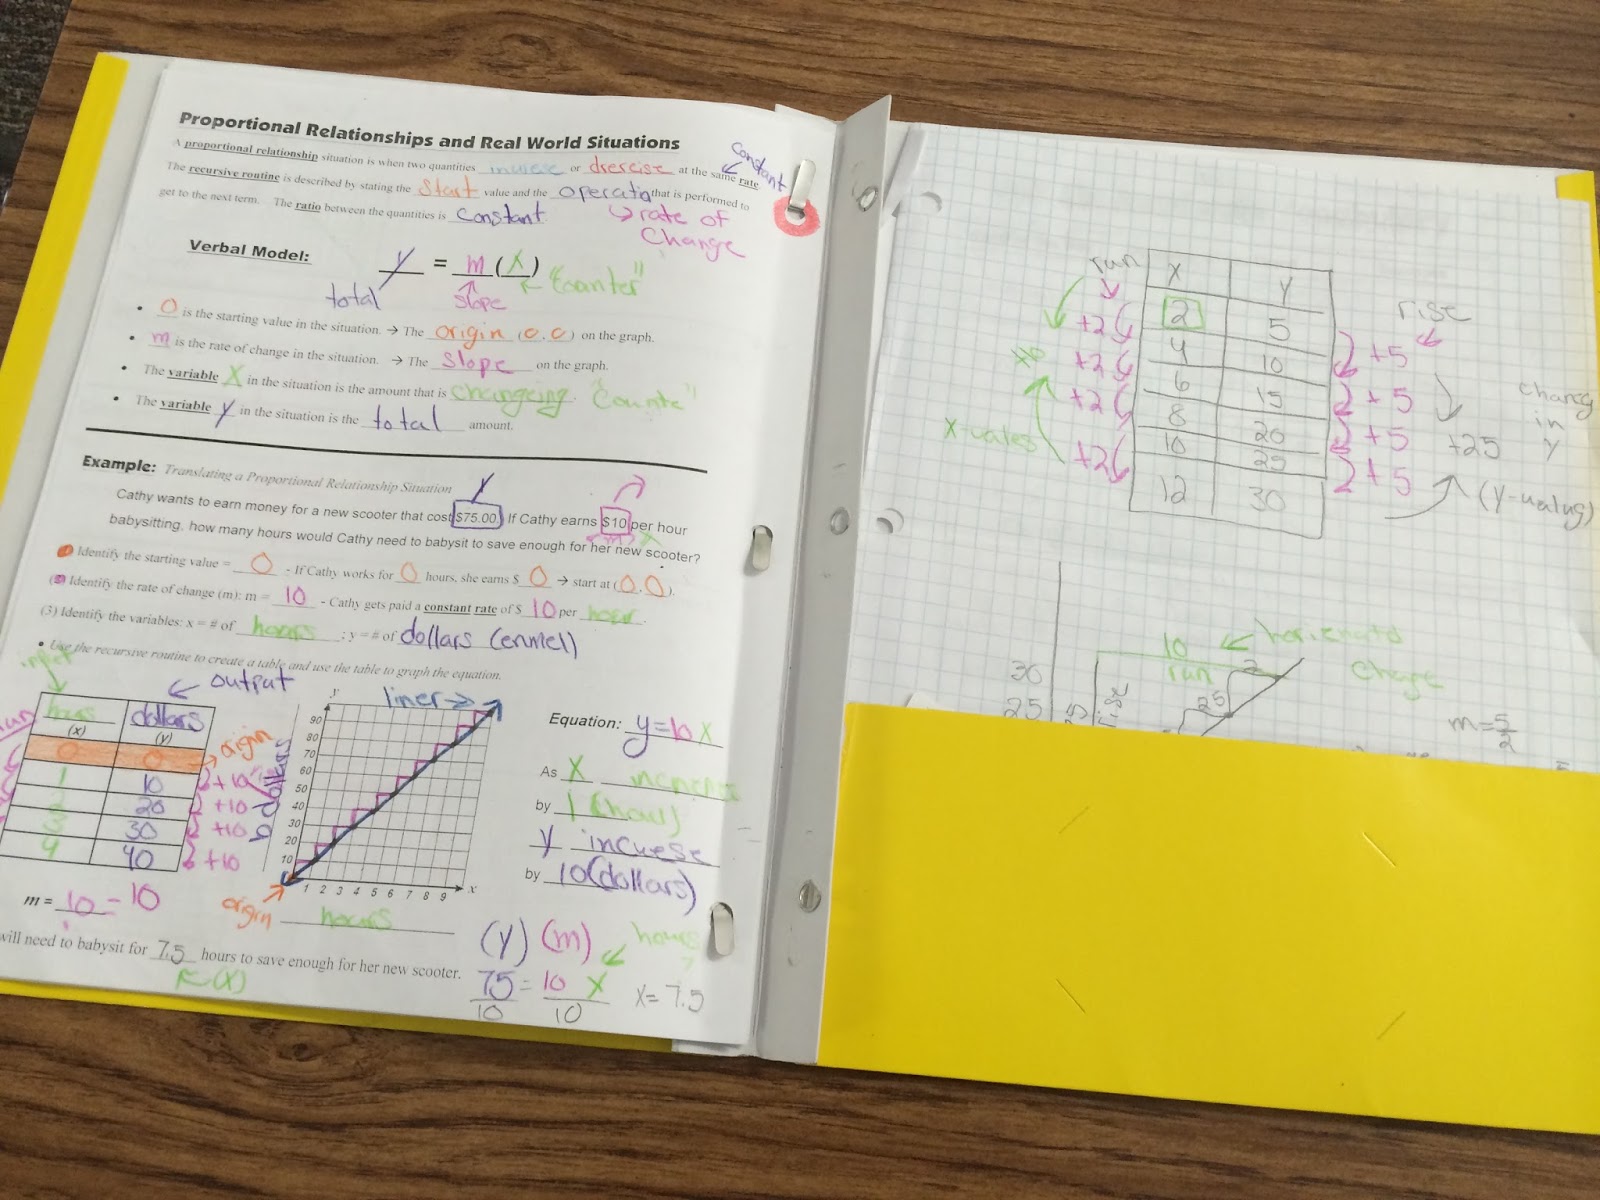 Proportional Relationships and Real World Situations
constant
A proportional relationship situation is when two quantities incuese or drercise at the same rate
The recursive routine is described by stating the Start value and the operatio that is performed to
get to the next term. The ratio between the quantities is constant
↳ rate of
Change
Verbal Model: y = m (x)
"Counter"
total slope
• O is the starting value in the situation. → The origin (0.0) on the graph.
• m is the rate of change in the situation. → The slope on the graph.
• The variable X in the situation is the amount that is changeing. "Counte"
• The variable y in the situation is the total amount.
Example: Translating a Proportional Relationship Situation
y
Cathy wants to earn money for a new scooter that cost $75.00. If Cathy earns $10 per hour
babysitting, how many hours would Cathy need to babysit to save enough for her new scooter?
(m) x
Identify the starting value = 0 - If Cathy works for 0 hours, she earns $ 0 → start at (0,0).
Identify the rate of change (m): m = 10 - Cathy gets paid a constant rate of $ 10 per hour.
(3) Identify the variables: x = # of hours ; y = # of dollars (enrnel)
• Use the recursive routine to create a table and use the table to graph the equation.
input
output
run
hours dollars
(x) (y)
0 0
origin
1 10
2 20
3 30
4 40
+10
+10
+10
+10
m = 10 = 10
1
y
liner →
90
80
70
60
50
40
30
20
10
dollars
1 2 3 4 5 6 7 8 9 x
origin hours
Equation: y=10x
As x increase
by 1 (hour)
y incuese
by 10(dollars)
will need to babysit for 7.5 hours to save enough for her new scooter.
(x)
(y) (m) hours
75 = 10 x
10 10
x = 7.5
run
X Y
2 5
4 10
6 15
8 20
10 25
12 30
+2
+2
+2
+2
x-vales
rise
+5
+5
+5
+5
+25
in
y
10
run
30
25
25
rise
25
2
m=5/2